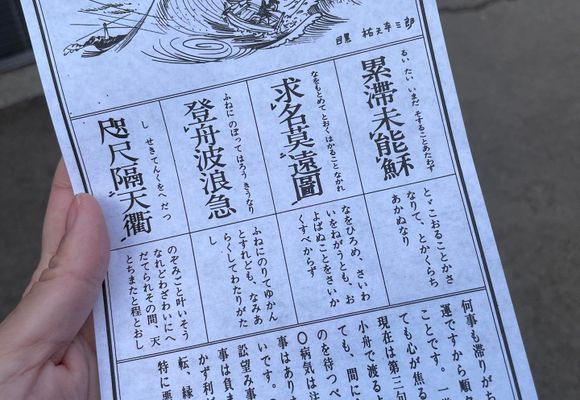 るい たい いまだ そすることあたわず
累滯未能穌
とゞこおることかさ
なりて、とかくらち
あかぬなり
なをもとめて とおくはかることなかれ
求名莫遠圖
なをひろめ、さいわ
いをねがうとも、お
よばぬことをさいか
くすべからず
ふねに のぼって はろう きうなり
登舟波浪急
ふねにのりてゆかん
とすれども、なみあ
らくしてわたりがた
し
し せきてんくをへだつ
咫尺隔天衢
のぞみごと叶いそう
なれどわざわいにへ
だてられその間、天
とちまたと程とおし
何事も滞りがち
運ですから順
ことです。一
ても心が焦る
現在は第三句
小舟で渡るよ
ても、間に
のを待つべ
〇病気は注
事はあり
いです。
訟望み事
事は負ま
かず利
転、縁
特に悪